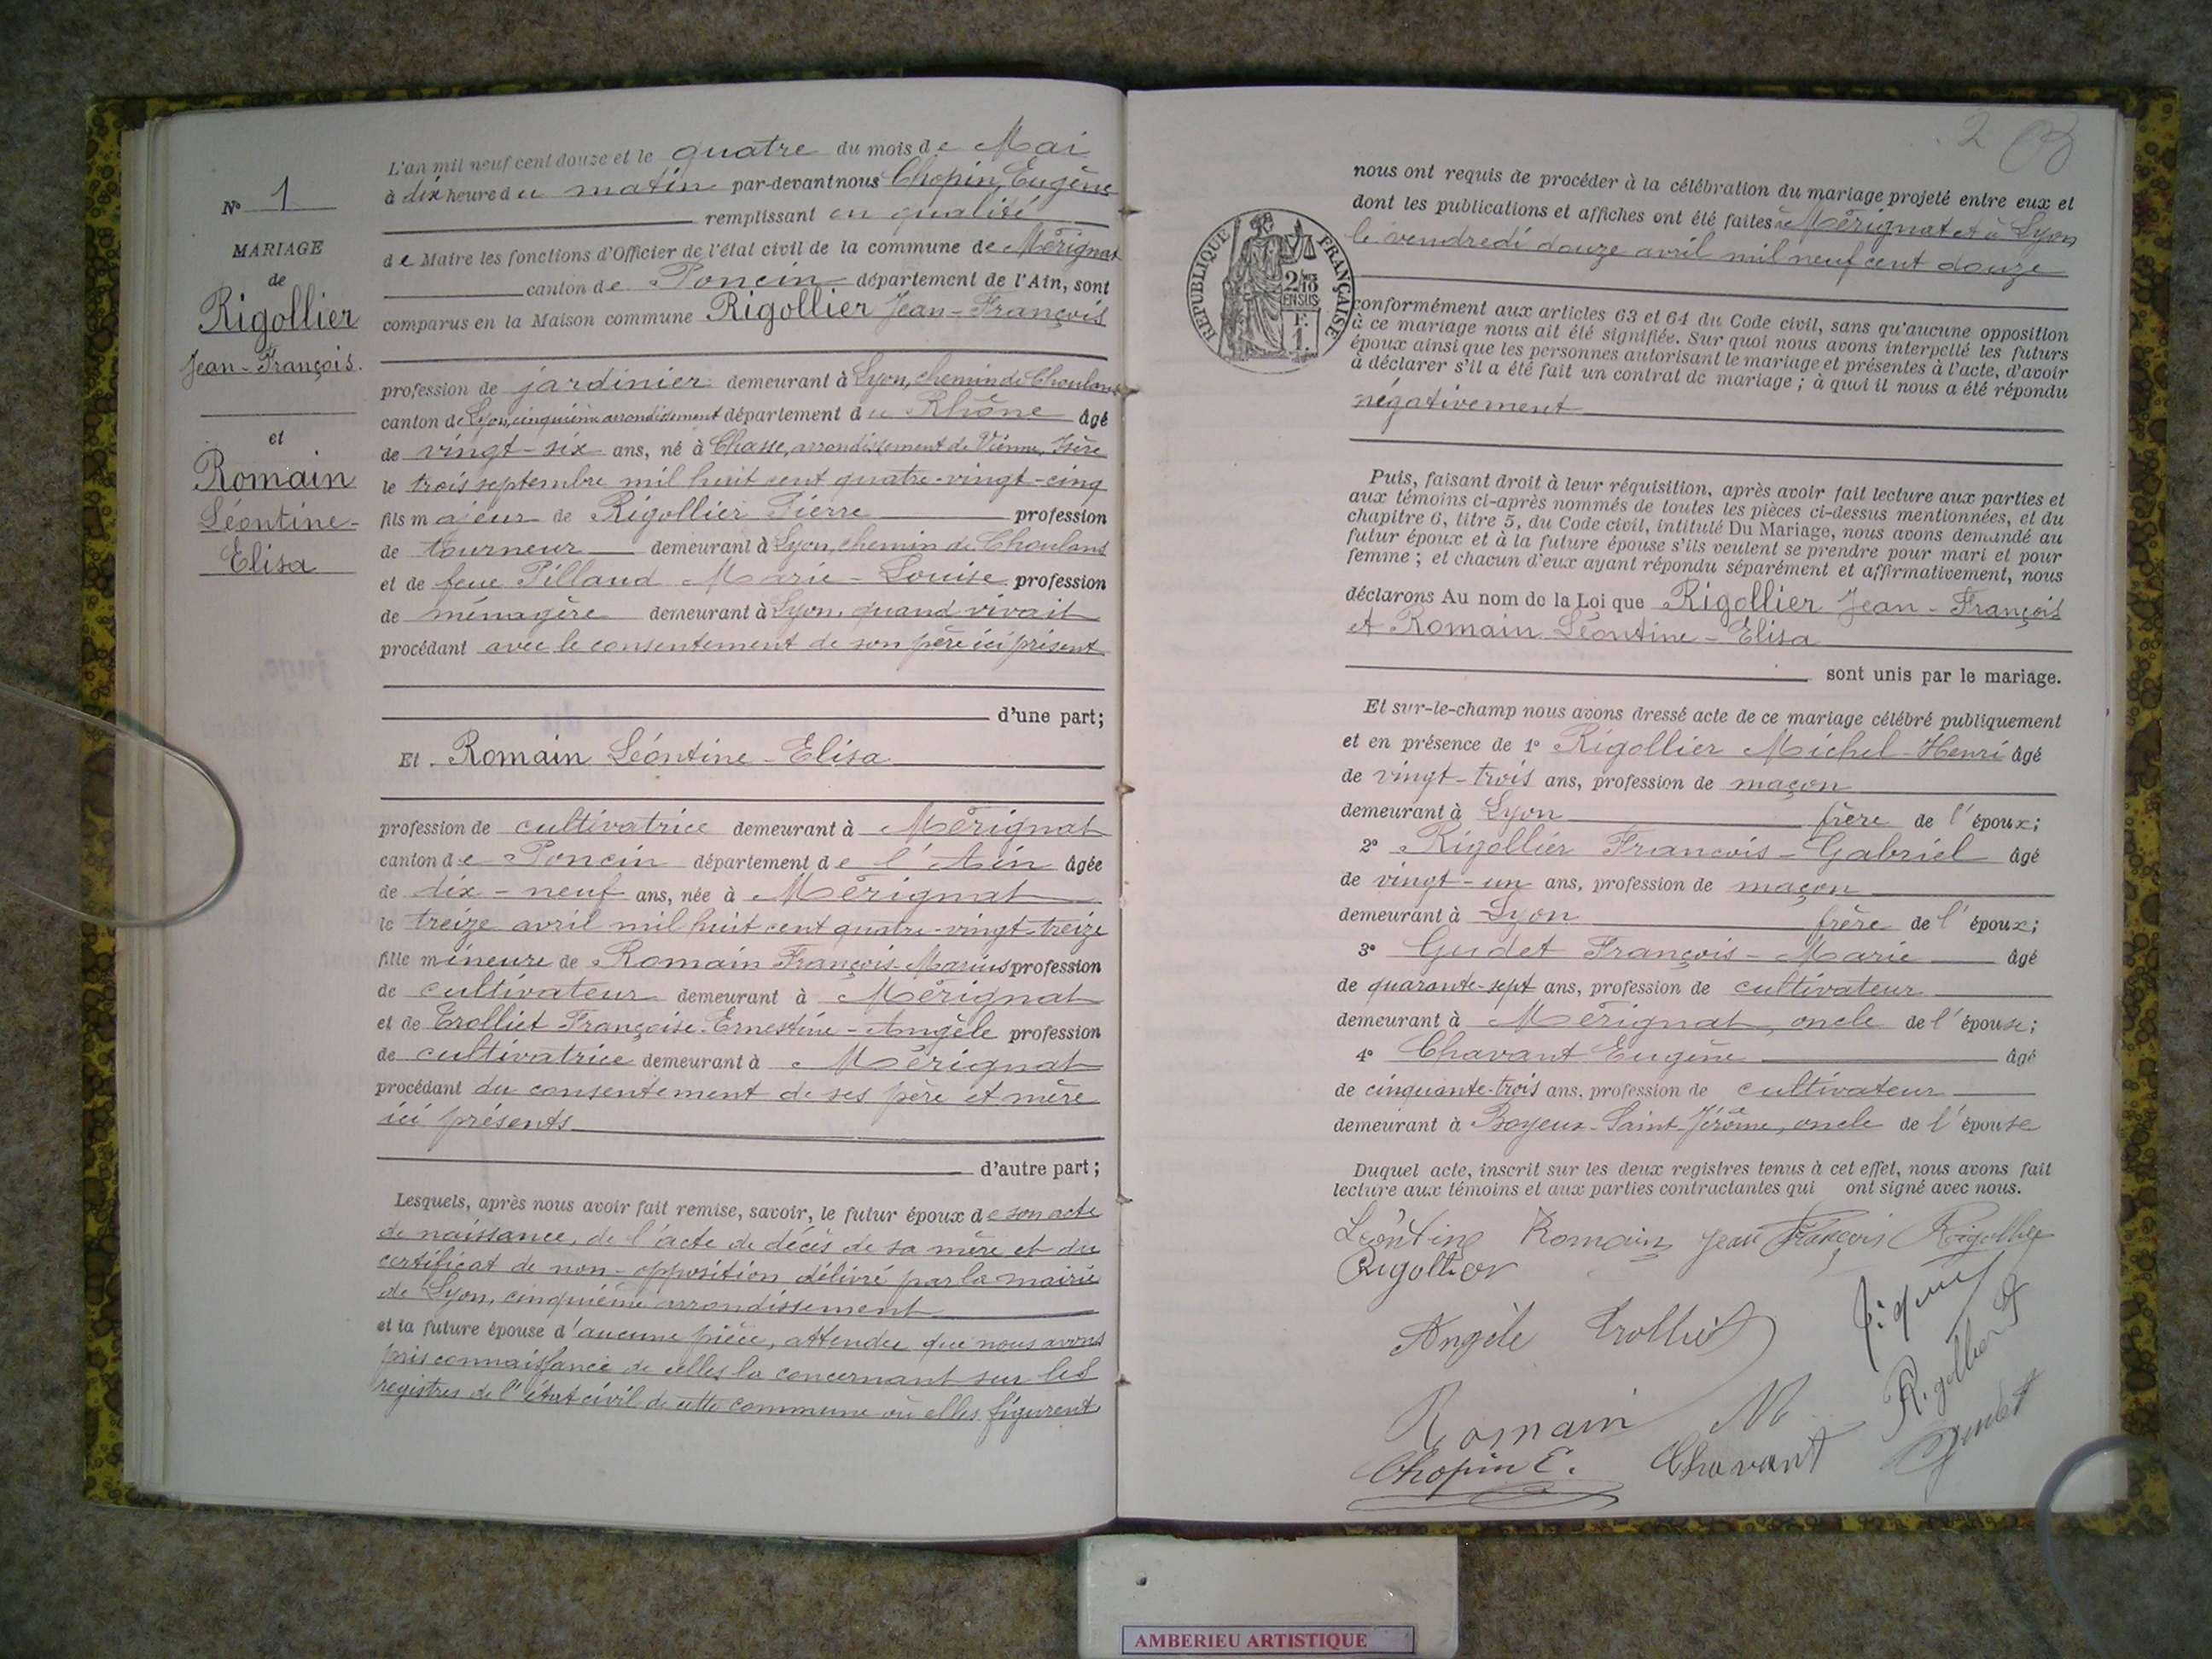 N° 1
MARIAGE
de
Rigollier
Jean-François.
et
Romain
Léontine-
Elisa
L'an mil neuf cent douze et le quatre du mois de Mai
à dix heure du matin par-devant nous Chopin, Eugène
remplissant en qualité
de Maire les fonctions d'Officier de l'état civil de la commune de Mérignat
canton de Poncin département de l'Ain, sont
comparus en la Maison commune Rigollier Jean-François
profession de jardinier demeurant à Lyon, chemin de Choulans
canton de Lyon, cinquième arrondissement département du Rhône âgé
de vingt-six ans, né à Chasse, arrondissement de Vienne, Isère
le trois septembre mil huit cent quatre-vingt-cinq
fils majeur de Rigollier Pierre profession
de tourneur demeurant à Lyon, chemin de Choulans
et de feue Pillaud Marie-Louise profession
de ménagère demeurant à Lyon, quand vivait
procédant avec le consentement de son père ici présent
d'une part;
Et Romain Léontine-Elisa
profession de cultivatrice demeurant à Mérignat
canton de Poncin département de l'Ain âgée
de dix-neuf ans, née à Mérignat
le treize avril mil huit cent quatre-vingt-treize
fille mineure de Romain François-Marius profession
de cultivateur demeurant à Mérignat
et de Trolliet Françoise-Ernestine-Angèle profession
de cultivatrice demeurant à Mérignat
procédant du consentement de ses père et mère
ici présents
d'autre part;
Lesquels, après nous avoir fait remise, savoir, le futur époux de son acte
de naissance, de l'acte de décès de sa mère et du
certificat de non-opposition délivré par la mairie
de Lyon, cinquième arrondissement
et la future épouse d'aucune pièce, attendu que nous avons
pris connaissance de celles la concernant sur les
registres de l'état civil de cette commune où elles figurent
2
REPUBLIQUE FRANÇAISE
2/10
EN SUS
F.
1.
nous ont requis de procéder à la célébration du mariage projeté entre eux et
dont les publications et affiches ont été faites à Mérignat et à Lyon
le vendredi douze avril mil neuf cent douze
conformément aux articles 63 et 64 du Code civil, sans qu'aucune opposition
à ce mariage nous ait été signifiée. Sur quoi nous avons interpellé les futurs
époux ainsi que les personnes autorisant le mariage et présentes à l'acte, d'avoir
à déclarer s'il a été fait un contrat de mariage; à quoi il nous a été répondu
négativement
Puis, faisant droit à leur réquisition, après avoir fait lecture aux parties et
aux témoins ci-après nommés de toutes les pièces ci-dessus mentionnées, et du
chapitre 6, titre 5, du Code civil, intitulé Du Mariage, nous avons demandé au
futur époux et à la future épouse s'ils veulent se prendre pour mari et pour
femme; et chacun d'eux ayant répondu séparément et affirmativement, nous
déclarons Au nom de la Loi que Rigollier Jean-François
et Romain Léontine-Elisa
sont unis par le mariage.
Et sur-le-champ nous avons dressé acte de ce mariage célébré publiquement
et en présence de 1° Rigollier Michel-Henri âgé
de vingt-trois ans, profession de maçon
demeurant à Lyon frère de l'époux;
2° Rigollier François-Gabriel âgé
de vingt-un ans, profession de maçon
demeurant à Lyon frère de l'époux;
3° Gudet François-Marie âgé
de quarante-sept ans, profession de cultivateur
demeurant à Mérignat, oncle de l'épouse;
4° Chavant Eugène âgé
de cinquante-trois ans, profession de cultivateur
demeurant à Boyeux-Saint-Jérôme, oncle de l'épouse
Duquel acte, inscrit sur les deux registres tenus à cet effet, nous avons fait
lecture aux témoins et aux parties contractantes qui ont signé avec nous.
Léontine Romain Jean François Rigollier
Rigollier
Angèle Trolliet
Rigollier
Romain M
Gudet
Chopin E. Chavant
AMBERIEU ARTISTIQUE